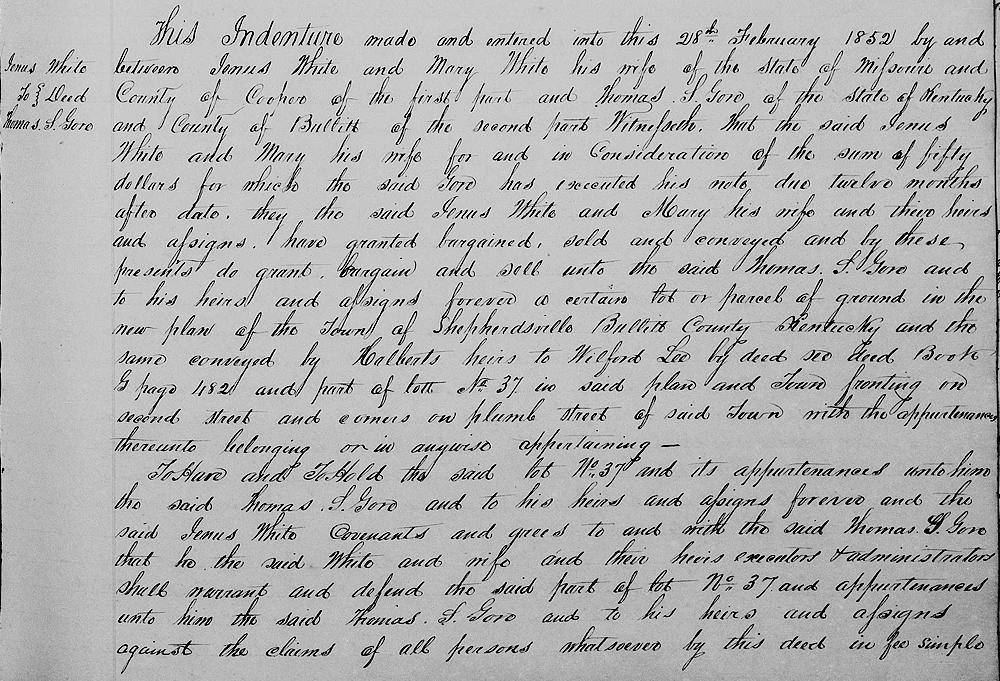 This Indenture made and entered into this 28th February 1852 by and
Jenus White
To } Deed
Thomas. S. Gore
between Jenus White and Mary White his wife of the state of Missouri and
County of Cooper of the first part and Thomas. S. Gore of the State of Kentucky
and County of Bullitt of the second part Witnesseth. That the said Jenus
White and Mary his wife for and in Consideration of the sum of fifty
dollars for which the said Gore has executed his note due twelve months
after date. they the said Jenus White and Mary his wife and their heirs
and assigns. have granted bargained, sold and conveyed and by these
presents do grant. bargain and sell unto the said Thomas. S. Gore and
to his heirs and assigns forever a certain lot or parcel of ground in the
new plan of the Town of Shepherdsville Bullitt County Kentucky and the
same conveyed by Halberts heirs to Wilford Lee by deed see Deed Book
G page 482 and part of lott No 37 in said plan and Town fronting on
second street and corners on plumb street of said Town with the appurtenances
thereunto belonging or in anywise appertaining —
To Have and To Hold the said lot No 37 and its appurtenances unto him
the said Thomas. S. Gore and to his heirs and assigns forever and the
said Jenus White Covenants and grees to and with the said Thomas. S. Gore
that he the said White and wife and their heirs executors & administrators
shall warrant and defend the said part of lot No 37. and appurtenances
unto him the said Thomas. S. Gore and to his heirs and assigns
against the claims of all persons whatsoever by this deed in fee simple